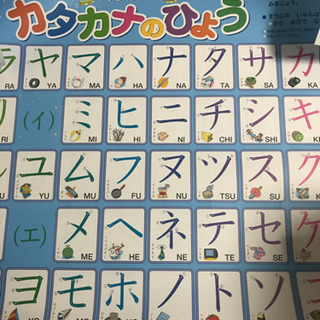 カタカナのひょう
ラ ヤ マ ハ ナ タ サ カ
RA YA MA HA NA TA SA KA
リ (イ) ミ ヒ ニ チ シ キ
RI MI HI NI CHI SHI KI
ル ユ ム フ ヌ ツ ス ク
YU MU FU NU TSU SU
(エ) メ ヘ ネ テ セ ケ
ME HE NE TE SE
ヨ モ ホ ノ ト ソ